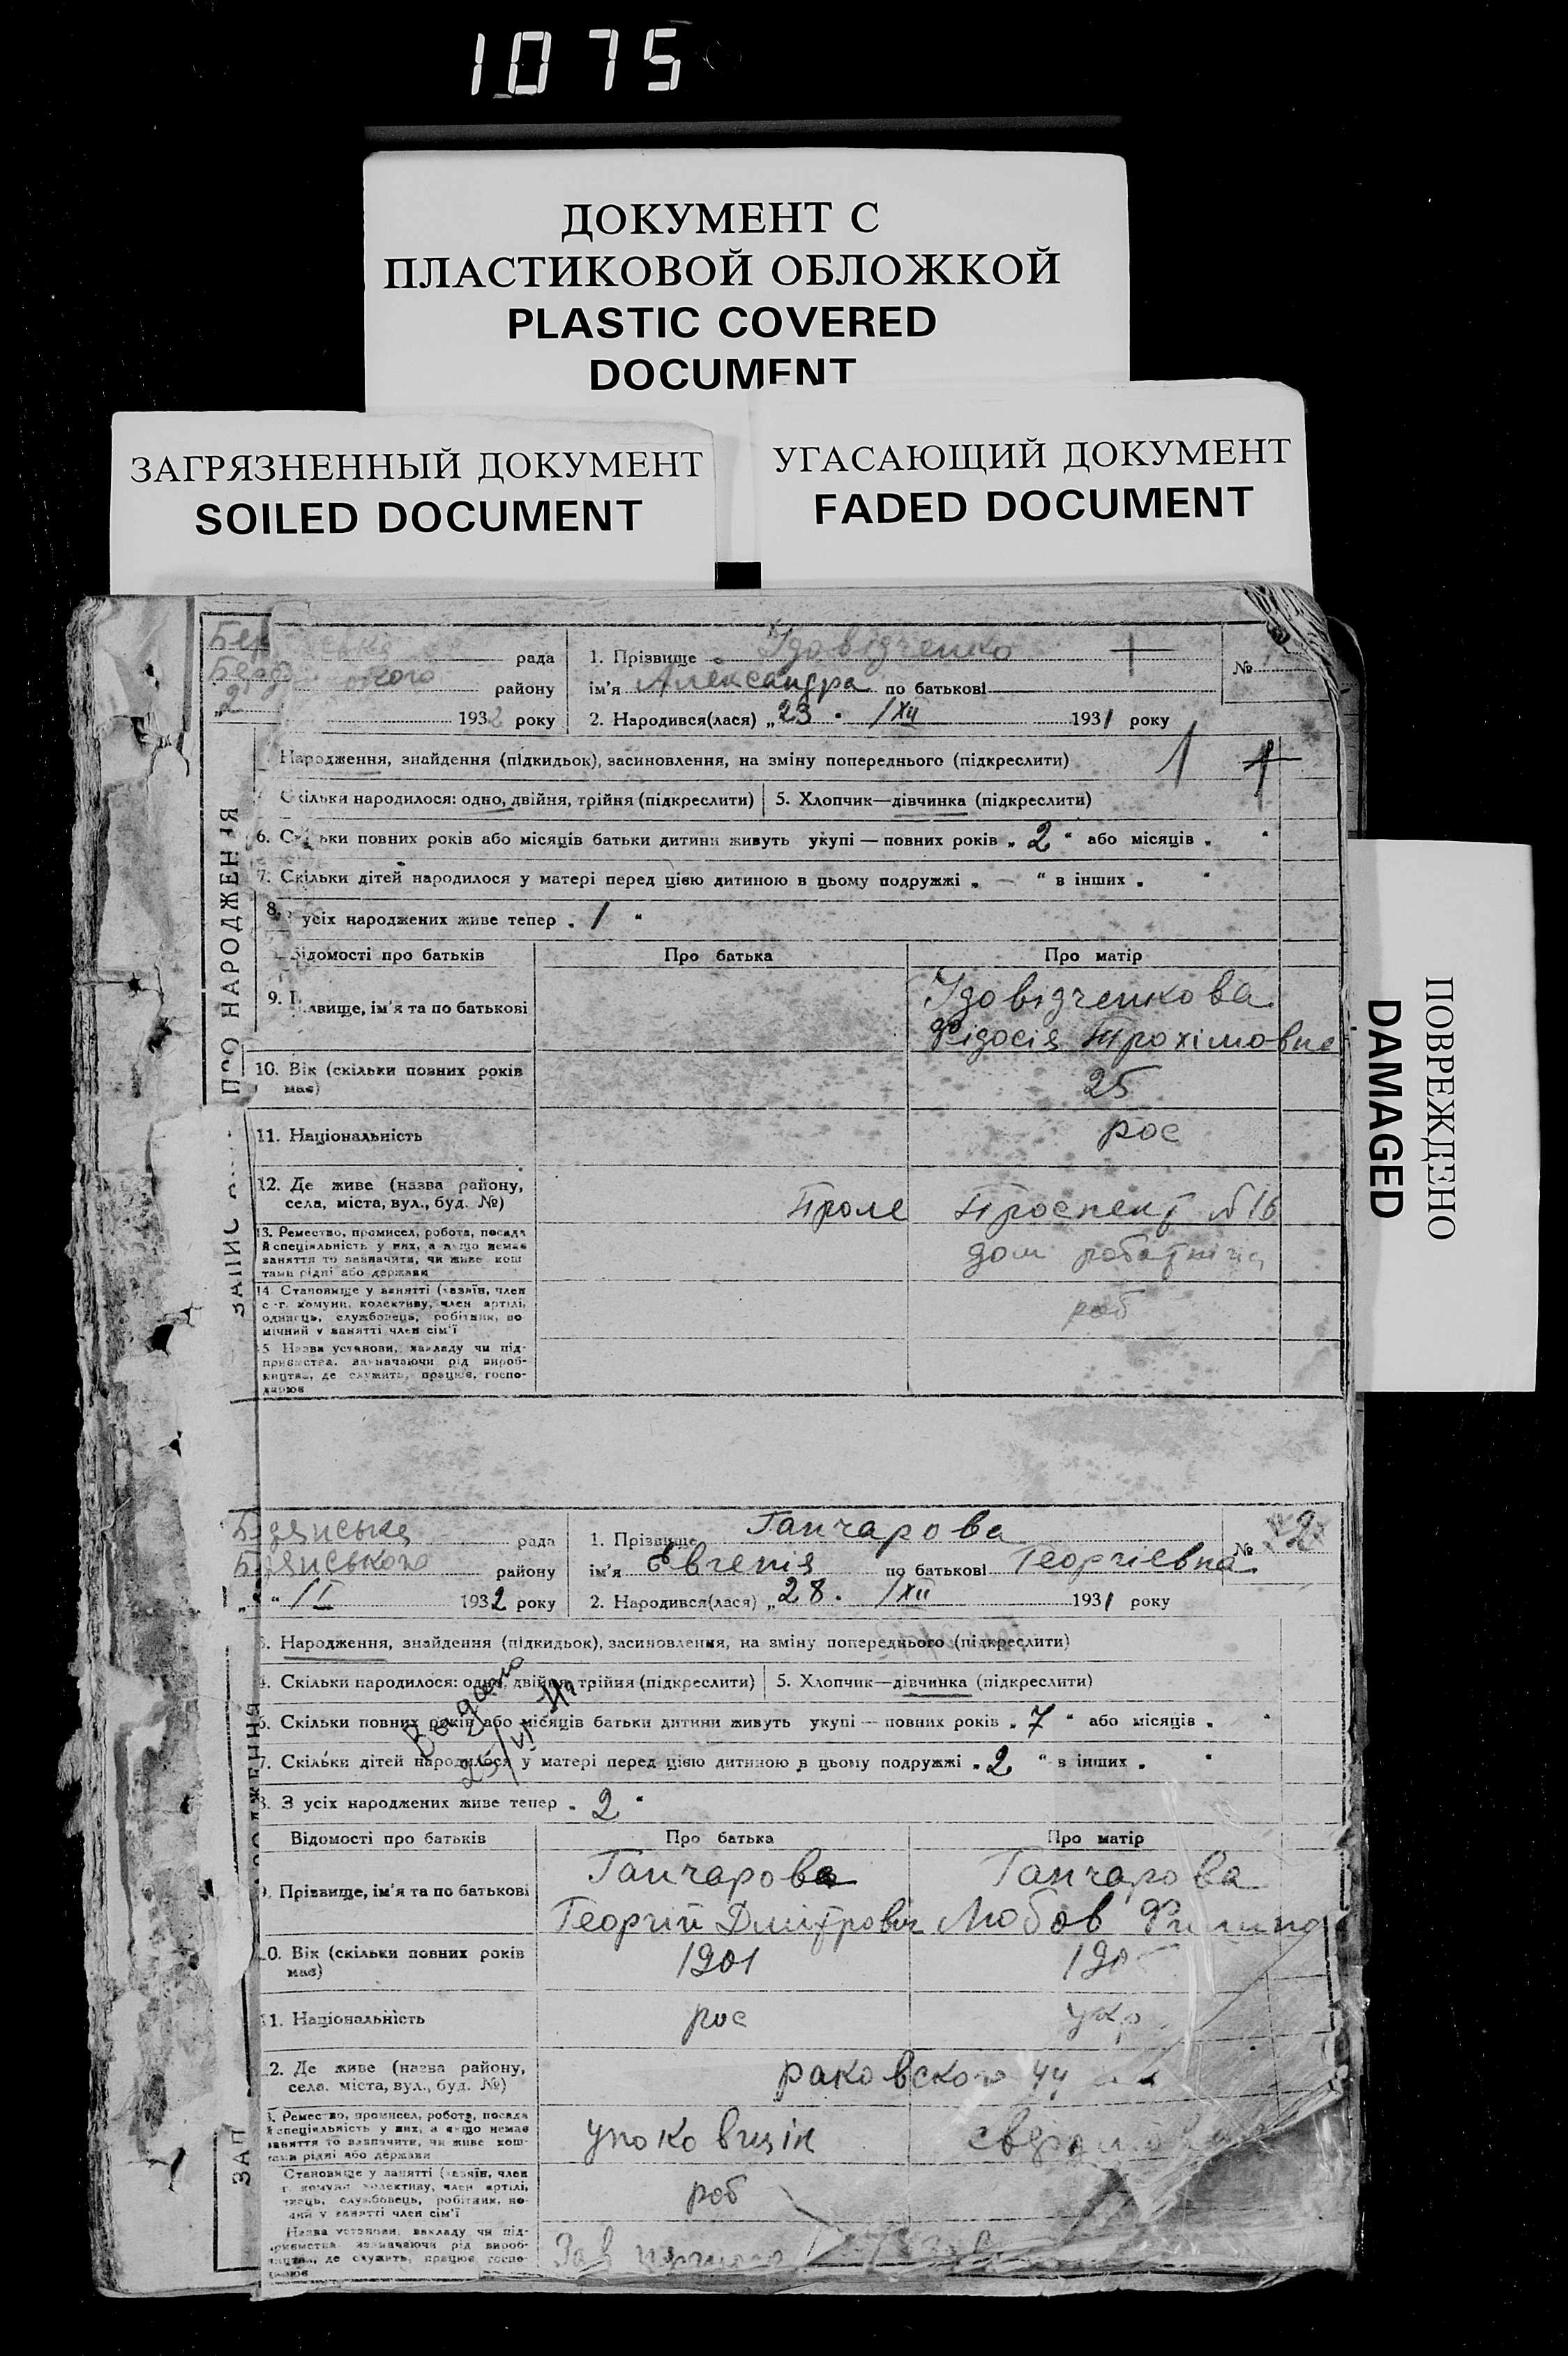 1075
ДОКУМЕНТ С
ПЛАСТИКОВОЙ ОБЛОЖКОЙ
PLASTIC COVERED
DOCUMENT
ЗАГРЯЗНЕННЫЙ ДОКУМЕНТ
SOILED DOCUMENT
УГАСАЮЩИЙ ДОКУМЕНТ
FADED DOCUMENT
ПОВРЕЖДЕНО
DAMAGED
ПРО НАРОДЖЕННЯ
рада
району
1932 року
1. Прізвище
ім'я Александра по батькові
2. Народився(лася) „23 • /XII 1931 року
№
Народження, знайдення (підкидьок), засиновлення, на зміну попереднього (підкреслити)
Скільки народилося: одно, двійня, трійня (підкреслити) 5. Хлопчик—дівчинка (підкреслити)
6. повних років або місяців батьки дитини живуть укупі — повних років „ 2 " або місяців „ "
7. Скільки дітей народилося у матері перед цією дитиною в цьому подружжі „ — " в інших „ "
8. усіх народжених живе тепер „ 1 "
Відомості про батьків Про батька Про матір
9. ім'я та по батькові
Здовідченкова
Фідосія Трохімовна
10. Вік (скільки повних років має) 25
11. Національність рос
12. Де живе (назва району, села, міста, вул., буд. №) Проле Проспект №16
13. Ремество, промисел, робота, посада й спеціяльність у них, а якщо немає заняття то зазначити, чи живе коштами рідні або держави дом робатніця
14. Становище у занятті (хазяїн, член с.-г. комуни, колективу, член артілі, одинець, службовець, робітник, помічний у занятті член сім'ї роб
5 Назва установи, закладу чи підприємства, зазначаючи рід виробництва, де служить, працює, господарює
рада
району
„ " /I 1932 року
1. Прізвище Ганчарова
ім'я Євгенія по батькові Георгіевна
2. Народився(лася) „28 • /XII 1931 року
№ 2
3. Народження, знайдення (підкидьок), засиновлення, на зміну попереднього (підкреслити)
4. Скільки народилося: одно, двійня, трійня (підкреслити) 5. Хлопчик—дівчинка (підкреслити)
6. Скільки повних років або місяців батьки дитини живуть укупі — повних років „ 7 " або місяців „ "
7. Скільки дітей народилося у матері перед цією дитиною в цьому подружжі „ 2 " в інших „ "
8. З усіх народжених живе тепер „ 2 "
Відомості про батьків Про батька Про матір
9. Прізвище, ім'я та по батькові
Ганчарова Ганчарова
Георгій Дмітровіч Любов
10. Вік (скільки повних років має) 1901
11. Національність рос укр
12. Де живе (назва району, села, міста, вул., буд. №) раковского 44
Ремество, промисел, робота, посада й спеціяльність у них, а якщо немає заняття то зазначити, чи живе коштами рідні або держави упоковщік
Становище у занятті (хазяїн, член колективу, член артілі, службовець, робітник, у занятті член сім'ї роб
Назва установи, закладу чи підприємства, зазначаючи рід виробництва, де служить, працює, господарює